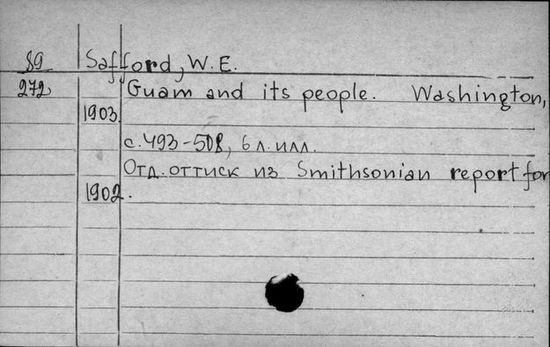 89 Safford, W.E.
272 Guam and its people. Washington,
1903.
с. 493-508, 6 л. илл.
Отд. оттиск из Smithsonian report for
1902.